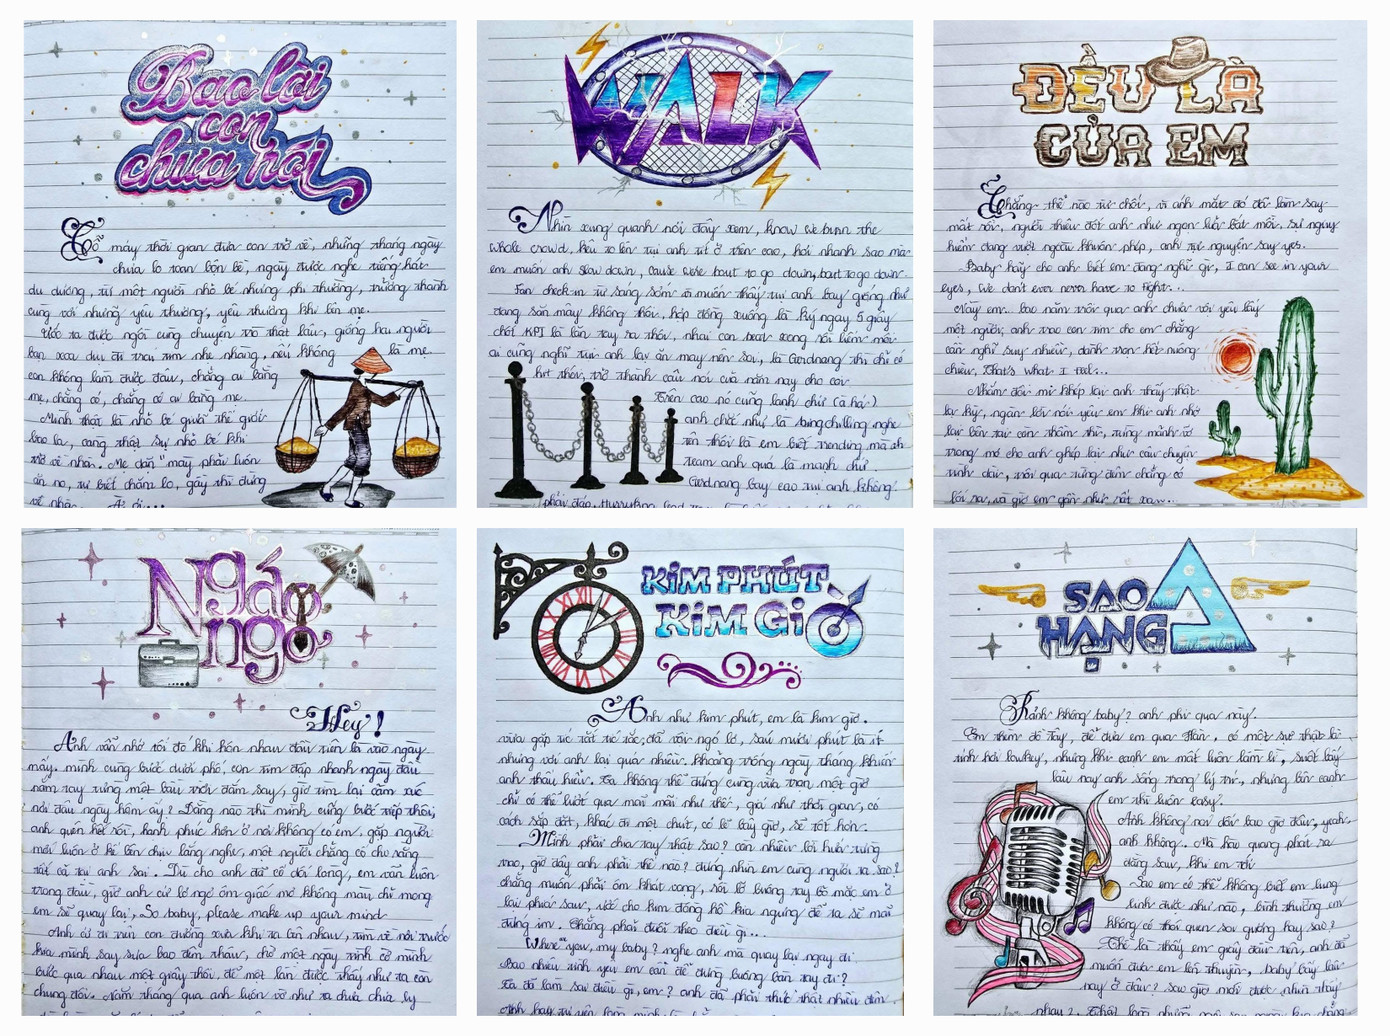 Bao lời
con
chưa nói
Cỗ máy thời gian đưa con trở về, những tháng ngày
chưa lo toan bộn bề, ngày được nghe tiếng hát
du dương, từ một người nhỏ bé nhưng phi thường, trưởng thành
cùng với những yêu thương, yêu thương khi bên mẹ.
Ước ta được ngồi cùng chuyện trò thật lâu, giống hai người
bạn xoa dịu đi trái tim nhẹ nhàng, nếu không là mẹ
con không làm được đâu, chẳng ai bằng
mẹ, chẳng có, chẳng có ai bằng mẹ.
Mình thật là nhỏ bé giữa thế giới
bao la, càng thật sự nhỏ bé khi
trở về nhà. Mẹ dặn "mày phải luôn
ăn no, tự biết chăm lo, gầy thì đừng
về nhà.
WALK
Nhìn xung quanh nơi đây xem, know we burn the
whole crowd, kêu to lên tụi anh tít ở trên cao, hơi nhanh sao mà
em muốn anh slow down, cause we're bout to go down, bout to go down
Fan check-in từ sáng sớm vì muốn thấy tụi anh bay giống như
đang săn mây không thôi, hợp đồng xuống là ký ngay 5 giây
chốt KPI là bắn tay ra thôi, nhai con beat xong rồi liếm môi
ai cũng nghĩ tụi anh lại ăn may nên soi, là Gerdnang thì chỉ có
hit thôi, trở thành câu nói của năm nay cho coi
Trên cao nó cũng lạnh chứ (à há)
anh chất như là bing chilling nghe
tên thôi là em biết trending mà ah
team anh quá là mạnh chứ
Gerdnang bay cao tụi anh không
phải đáp, Hurrykng lead
ĐỀU LÀ
CỦA EM
Chẳng thể nào từ chối, vì ánh mắt đó đã làm say
mất rồi, người thiêu đốt anh như ngọn lửa bất mồi. Sự nguy
hiểm đang vượt ngoài khuôn phép, anh tự nguyện say yes.
Baby hãy cho anh biết em đang nghĩ gì, I can see in your
eyes, we don't ever never have to fight...
Này em.. bao năm trôi qua anh chưa với yêu lấy
một người, anh trao con tim cho em chẳng
cần nghĩ suy nhiều, dành trọn hết nuông
chiều, That's what I feel...
Nhắm đôi mi khép lại anh thấy thật
lạ kỳ, ngàn lần nói yêu em khi anh nhớ
lại bên tai còn thầm thì, từng mảnh vỡ
trong mơ cho anh ghép lại như câu chuyện
tình dài, trôi qua từng đêm chẳng có
lối ra, và giờ em gần như rất xa...
Ngáo
ngơ
Hey!
Anh vẫn nhớ tối đó khi hôn nhau đầu tiên là vào ngày
mấy. mình cùng bước dưới phố, con tim đập nhanh ngày đầu
nắm tay từng một bầu trời đắm say, giờ tìm lại cảm xúc
nơi đâu ngày hôm ấy? Đằng nào thì mình cũng bước tiếp thôi,
anh quên hết rồi, hạnh phúc hơn ở nơi không có em. gặp người
mới luôn ở kề bên chịu lắng nghe, một người chẳng có cho rằng
tất cả tại anh sai. Dù cho anh đã cố dối lòng, em vẫn luôn
trong đầu, giờ anh cứ lơ ngơ ôm giấc mơ không màu chỉ mong
em sẽ quay lại, So baby, please make up your mind
Anh cứ đi trên con đường xưa khi ta bên nhau, tìm về nơi trước
kia mình say sưa bao đêm thâu, chờ một ngày tình cờ mình
bước qua nhau một giây thôi. để một lần được thấy như ta còn
chung đôi. Năm tháng qua anh luôn vờ như ta chưa chia ly
KIM PHÚT
KIM GIỜ
Anh như kim phút, em là kim giờ.
vừa gặp tíc tắc tíc tắc, đã vội ngó lơ, sáu mươi phút là ít
nhưng với anh lại quá nhiều. khoảng trống ngày tháng khiến
anh thấu hiểu. Ta không thể đứng cùng vừa tròn một giờ
chỉ có thể lướt qua mãi mãi như thế, giá như thời gian, có
cách sắp đặt, khác đi một chút, có lẽ bây giờ, sẽ tốt hơn.
Mình phải chia tay thật sao? còn nhiều lời hứa từng
trao, giờ đây anh phải thế nào? đứng nhìn em cùng người ta sao?
chẳng muốn phải ôm khát vọng, rồi lỡ buông tay bỏ mặc em ở
lại phía sau, ước cho kim đồng hồ kia ngừng để ta sẽ mãi
đứng im. Chẳng phải đuổi theo điều gì...
Where you, my baby? nghe anh mà quay lại ngay đi
Bao nhiêu tình yêu em cần để đừng buông bàn tay đi?
Ta đã làm sai điều gì, em? anh đã phải thức thật nhiều đêm
SAO
HẠNG A
Rảnh không baby? anh phi qua này.
Em thèm đồ Tây, để đưa em qua Hàn, có một sự thật là
tính hơi lowkey, nhưng khi cạnh em mất luôn làm lì, suốt bấy
lâu nay anh sống trong lý trí, nhưng bên cạnh
em thì luôn easy.
Anh không nói dối bao giờ đâu, yeah,
anh không. Mà hào quang phát ra
đằng sau, khi em tới
Sao em có thể không biết em lung
linh được như nào, bình thường em
không có thói quen soi gương hay sao?
Thế là thấy em giây đầu tiên, anh đã
muốn đưa em lên thuyền, baby bấy lâu
nay ở đâu? Sao giờ mới được nhìn thấy
nhau?